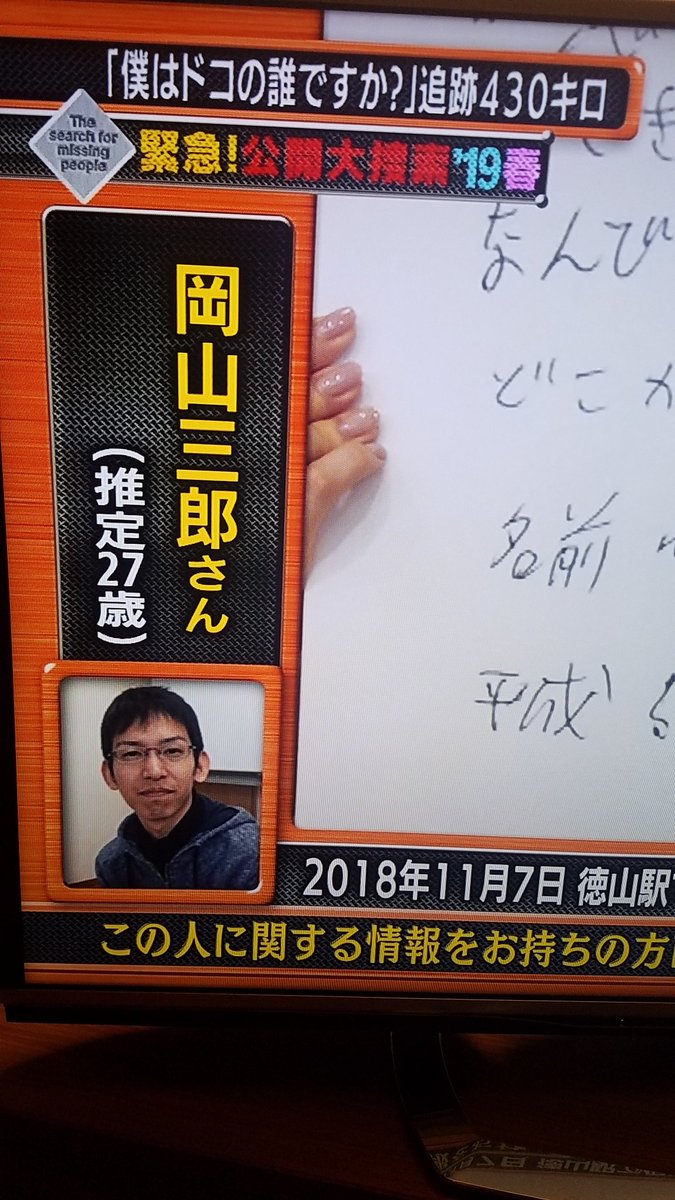 「僕はドコの誰ですか?」追跡430キロ
The
search for
missing
people
緊急!公開大捜索'19春
岡山三郎さん
(推定27歳)
なんび
どこか
名前
平成
2018年11月7日 徳山駅
この人に関する情報をお持ちの方は